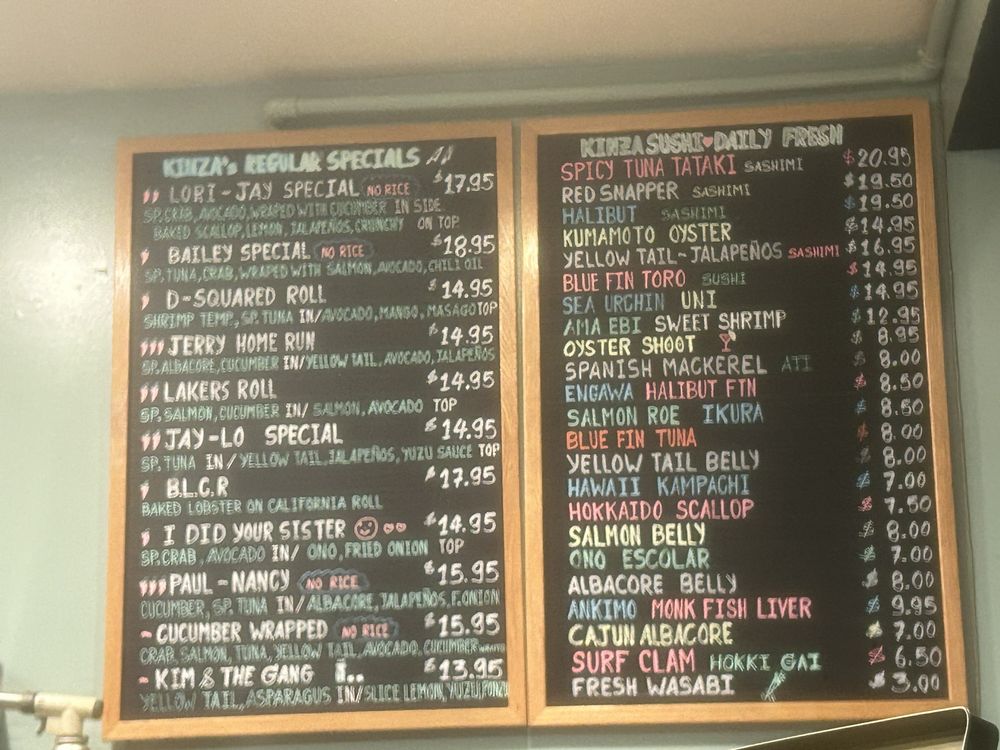 KINZA's REGULAR SPECIALS
LORI-JAY SPECIAL NO RICE $17.95
SP.CRAB, AVOCADO, WRAPED WITH CUCUMBER IN SIDE
BAKED SCALLOP, LEMON, JALAPEÑOS, CRUNCHY ON TOP
BAILEY SPECIAL NO RICE $18.95
SP.TUNA, CRAB, WRAPED WITH SALMON, AVOCADO, CHILI OIL
D-SQUARED ROLL $14.95
SHRIMP TEMP., SP. TUNA IN/AVOCADO, MANGO, MASAGO TOP
JERRY HOME RUN $14.95
SP.ALBACORE, CUCUMBER IN/YELLOW TAIL, AVOCADO, JALAPEÑOS
LAKERS ROLL $14.95
SP. SALMON, CUCUMBER IN/ SALMON, AVOCADO TOP
JAY-LO SPECIAL $14.95
SP. TUNA IN/ YELLOW TAIL, JALAPEÑOS, YUZU SAUCE TOP
B.L.C.R $17.95
BAKED LOBSTER ON CALIFORNIA ROLL
I DID YOUR SISTER $14.95
SP.CRAB, AVOCADO IN/ ONO, FRIED ONION TOP
PAUL-NANCY NO RICE $15.95
CUCUMBER, SP. TUNA IN/ALBACORE, JALAPEÑOS, F.ONION
CUCUMBER WRAPPED NO RICE $15.95
CRAB, SALMON, TUNA, YELLOW TAIL, AVOCADO, CUCUMBER
KIM & THE GANG $13.95
YELLOW TAIL, ASPARAGUS IN/SLICE LEMON, YUZU PONZU
KINZA SUSHI♥DAILY FRESH
SPICY TUNA TATAKI SASHIMI $20.95
RED SNAPPER SASHIMI $19.50
HALIBUT SASHIMI $19.50
KUMAMOTO OYSTER $14.95
YELLOW TAIL-JALAPEÑOS SASHIMI $16.95
BLUE FIN TORO SUSHI $14.95
SEA URCHIN UNI $14.95
AMA EBI SWEET SHRIMP $12.95
OYSTER SHOOT $8.95
SPANISH MACKEREL AJI $8.00
ENGAWA HALIBUT FIN $8.50
SALMON ROE IKURA $8.50
BLUE FIN TUNA $8.00
YELLOW TAIL BELLY $8.00
HAWAII KAMPACHI $7.00
HOKKAIDO SCALLOP $7.50
SALMON BELLY $8.00
ONO ESCOLAR $7.00
ALBACORE BELLY $8.00
ANKIMO MONK FISH LIVER $9.95
CAJUN ALBACORE $7.00
SURF CLAM HOKKI GAI $6.50
FRESH WASABI $3.00